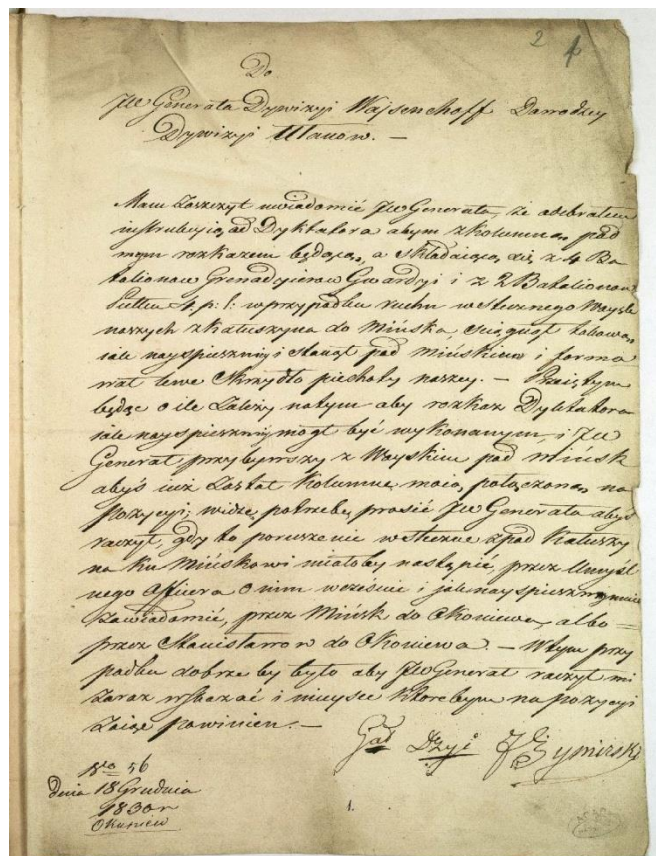 2 4
Do
JW Generała Dywizyi Wajsenhoff Dowodzcy
Dywizyi Ułanow. —
Mam Zaszczyt uwiadomić JW Generała, że odebrałem
instrukcyią od Dyktatora abym z kolumną pod
mym rozkazem będącą, a składaiącą się z 4 Ba
talionow Grenadyierow Gwardyi i z 2 Batalionow
Pułku 4. p: l: w przypadku ruchu wstecznego Woysk
naszych z Kałuszyna do Mińska, sciągnął takową
iak nayspieszniey i stanął pod Mińskiem i formo
wał lewe Skrzydło piechoty naszey. —
będąc o ile Zależy na tym aby rozkaz Dyktatora
iak nayspieszniey mogł być wykonanym i JW
Generał przybywszy z Woyskiem pod Mińsk
abyś iuż Zastał Kolumnę moią połączoną na
Pozycyi; widzę potrzebę prosić JW Generała abyś
raczył, gdy to poruszenie wsteczne z pod Kałuszy
na ku Mińskowi miałoby nastąpić, przez Umyśl
nego Officera o nim wcześnie i jak nayspieszniey mnie
Zawiadomić, przez Mińsk do Okoniewa, albo
przez Stanisławow do Okoniewa. — W tym przy
padku dobrze by było aby JW Generał raczył mi
Zaraz wskazać i mieysce ktorebym na pozycyi
Zaiąć powinien. —
Żymirski
Nro 56
dnia 18 Grudnia
1830 r
Okuniew
1.